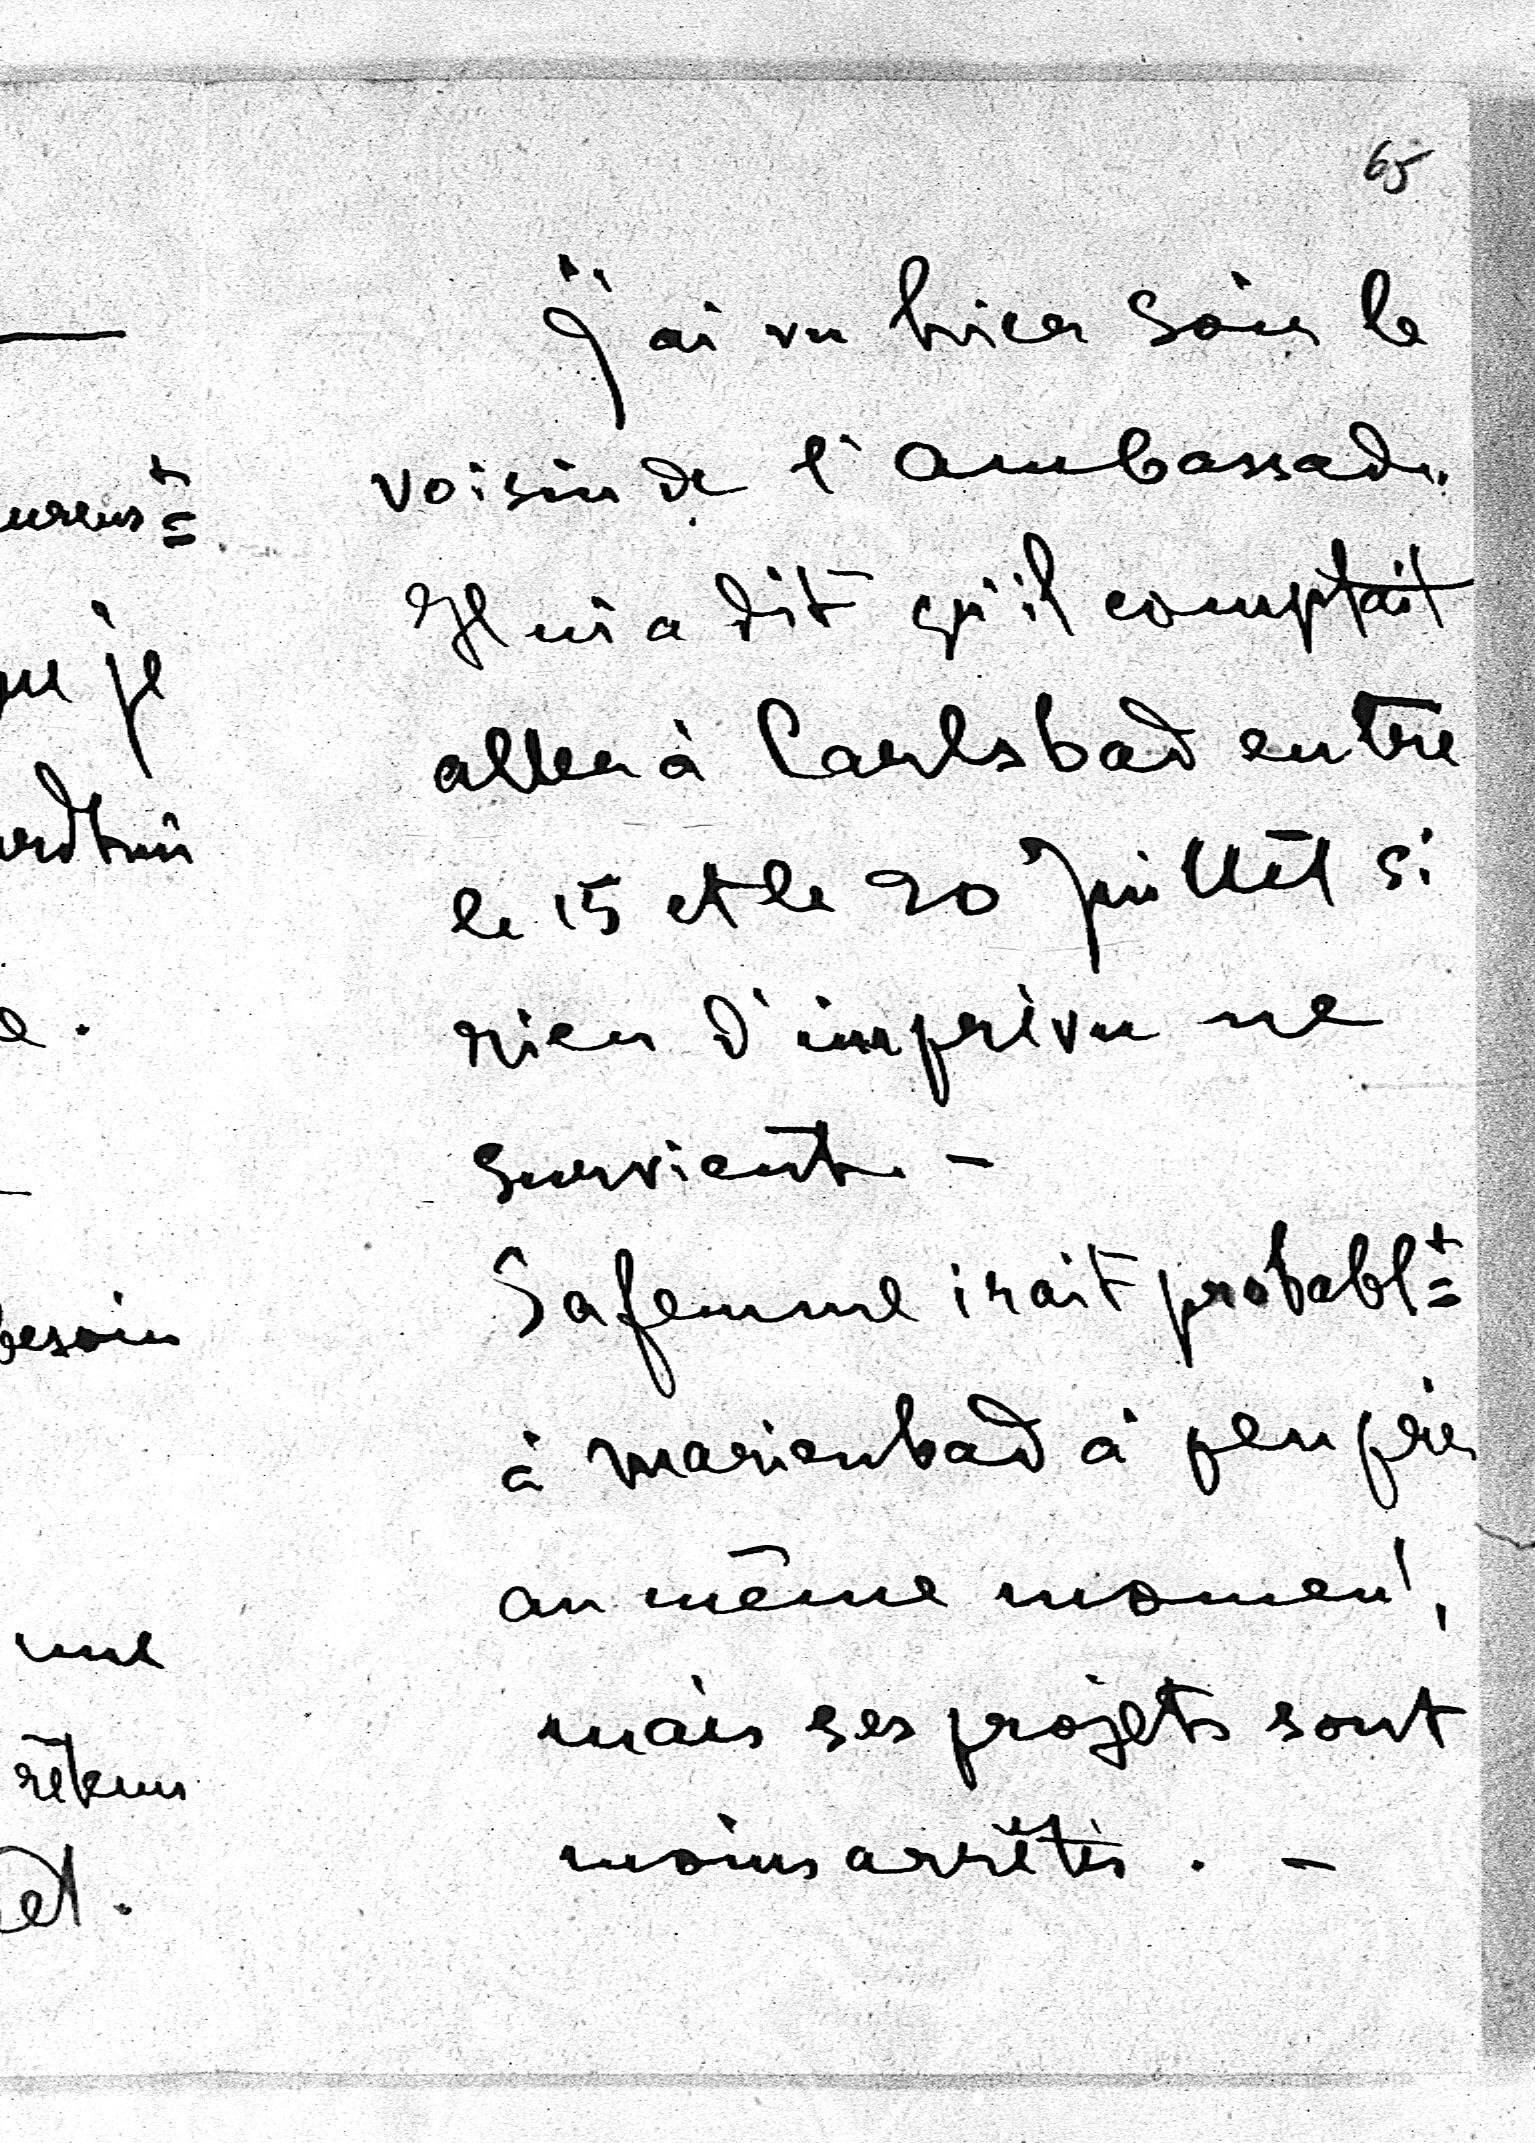 65
J'ai vu hier soir le
voisin de l'ambassade.
Il m'a dit qu'il comptait
aller à Carlsbad entre
le 15 et le 20 Juillet si
rien d'imprévu ne
survient. -
Sa femme irait probablt
à marienbad à peu près
au même moment,
mais ses projets sont
moins arrêtés. -
je
besoin